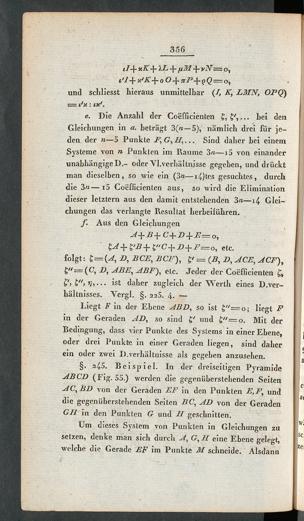 356
ιI+ϰK+λL+μM+νN=0,
ι'I+ϰ'K+οO+πP+ϱQ=0,
und schliesst hieraus unmittelbar (I, K, LMN, OPQ)
=ι'ϰ : ιϰ'.
e. Die Anzahl der Coëfficienten ζ, ζ',... bei den
Gleichungen in a. beträgt 3(n—5), nämlich drei für je-
den der n—5 Punkte F, G, H,... Sind daher bei einem
Systeme von n Punkten im Raume 3n—15 von einander
unabhängige D.- oder Vl.verhältnisse gegeben, und drückt
man dieselben, so wie ein (3n—14)tes gesuchtes, durch
die 3n—15 Coëfficienten aus, so wird die Elimination
dieser letztern aus den damit entstehenden 3n—14 Glei-
chungen das verlangte Resultat herbeiführen.
f. Aus den Gleichungen
A+B+C+D+E=0,
ζA+ζ'B+ζ''C+D+F=0, etc.
folgt: ζ=(A, D, BCE, BCF), ζ'=(B, D, ACE, ACF),
ζ''=(C, D, ABE, ABF), etc. Jeder der Coëfficienten ζ,
ζ', ζ'', η,... ist daher zugleich der Werth eines D.ver-
hältnisses. Vergl. §. 225. 4. —
Liegt F in der Ebene ABD, so ist ζ''=0; liegt F
in der Geraden AD, so sind ζ' und ζ''=0. Mit der
Bedingung, dass vier Punkte des Systems in einer Ebene,
oder drei Punkte in einer Geraden liegen, sind daher
ein oder zwei D.verhältnisse als gegeben anzusehen.
§. 245. Beispiel. In der dreiseitigen Pyramide
ABCD (Fig. 55.) werden die gegenüberstehenden Seiten
AC, BD von der Geraden EF in den Punkten E, F, und
die gegenüberstehenden Seiten BC, AD von der Geraden
GH in den Punkten G und H geschnitten.
Um dieses System von Punkten in Gleichungen zu
setzen, denke man sich durch A, G, H eine Ebene gelegt,
welche die Gerade EF im Punkte M schneide. Alsdann